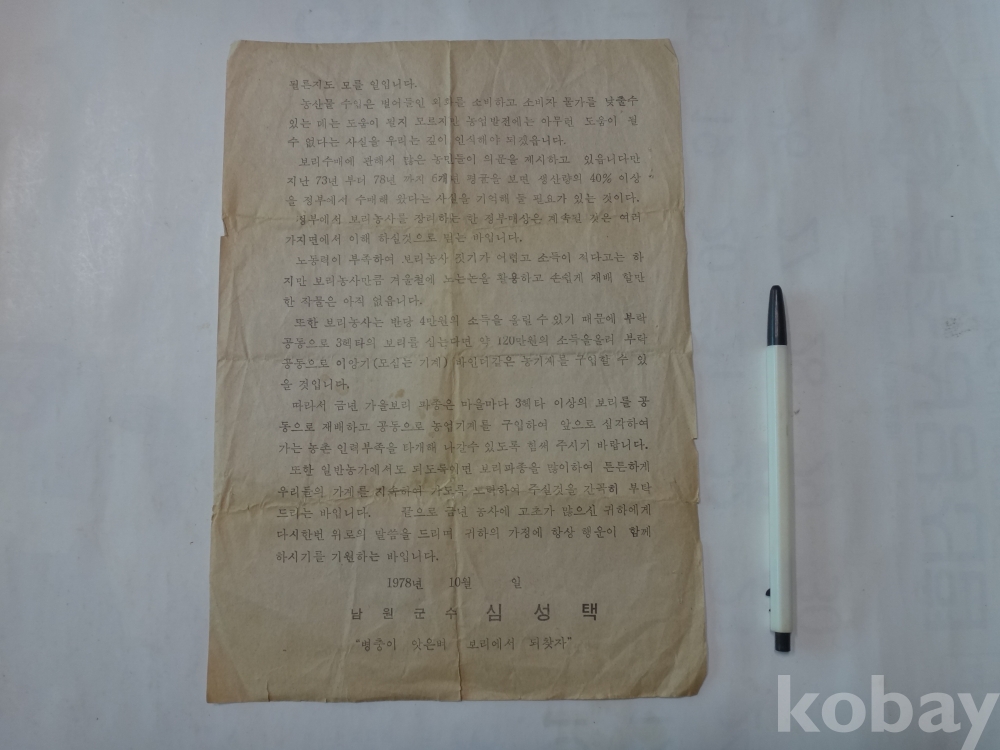 될른지도 모를 일입니다.
농산물 수입은 벌어들인 외화를 소비하고 소비자 물가를 낮출수
있는 데는 도움이 될지 모르지만 농업발전에는 아무런 도움이 될
수 없다는 사실을 우리는 깊이 인식해야 되겠읍니다.
보리수매에 관해서 많은 농민들이 의문을 제시하고 있읍니다만
지난 73년 부터 78년 까지 6개년 평균을 보면 생산량의 40% 이상
을 정부에서 수매해 왔다는 사실을 기억해 둘 필요가 있는 것이다.
정부에서 보리농사를 장려하는 한 정부매상은 계속될 것은 여러
가지면에서 이해 하실것으로 믿는 바입니다.
노동력이 부족하여 보리농사 짓기가 어렵고 소득이 적다고는 하
지만 보리농사만큼 겨울철에 노는논을 활용하고 손쉽게 재배 할만
한 작물은 아직 없읍니다.
또한 보리농사는 반당 4만원의 소득을 올릴 수 있기 때문에 부락
공동으로 3헥타의 보리를 심는다면 약 120만원의 소득을올려 부락
공동으로 이앙기(모심는 기계) 바인더같은 농기계를 구입할 수 있
을 것입니다.
따라서 금년 가을보리 파종은 마을마다 3헥타 이상의 보리를 공
동으로 재배하고 공동으로 농업기계를 구입하여 앞으로 심각하여
가는 농촌 인력부족을 타개해 나갈수 있도록 힘써 주시기 바랍니다.
또한 일반농가에서도 되도록이면 보리파종을 많이하여 튼튼하게
우리들의 가계를 노력하여 주실것을 간곡히 부탁
드리는 바입니다. 끝으로 금년 농사에 고초가 많으신 귀하에게
다시한번 위로의 말씀을 드리며 귀하의 가정에 항상 행운이 함께
하시기를 기원하는 바입니다.
1978년 10월 일
남원군수 심성택
"병충이 앗은벼 보리에서 되찾자"
kobay